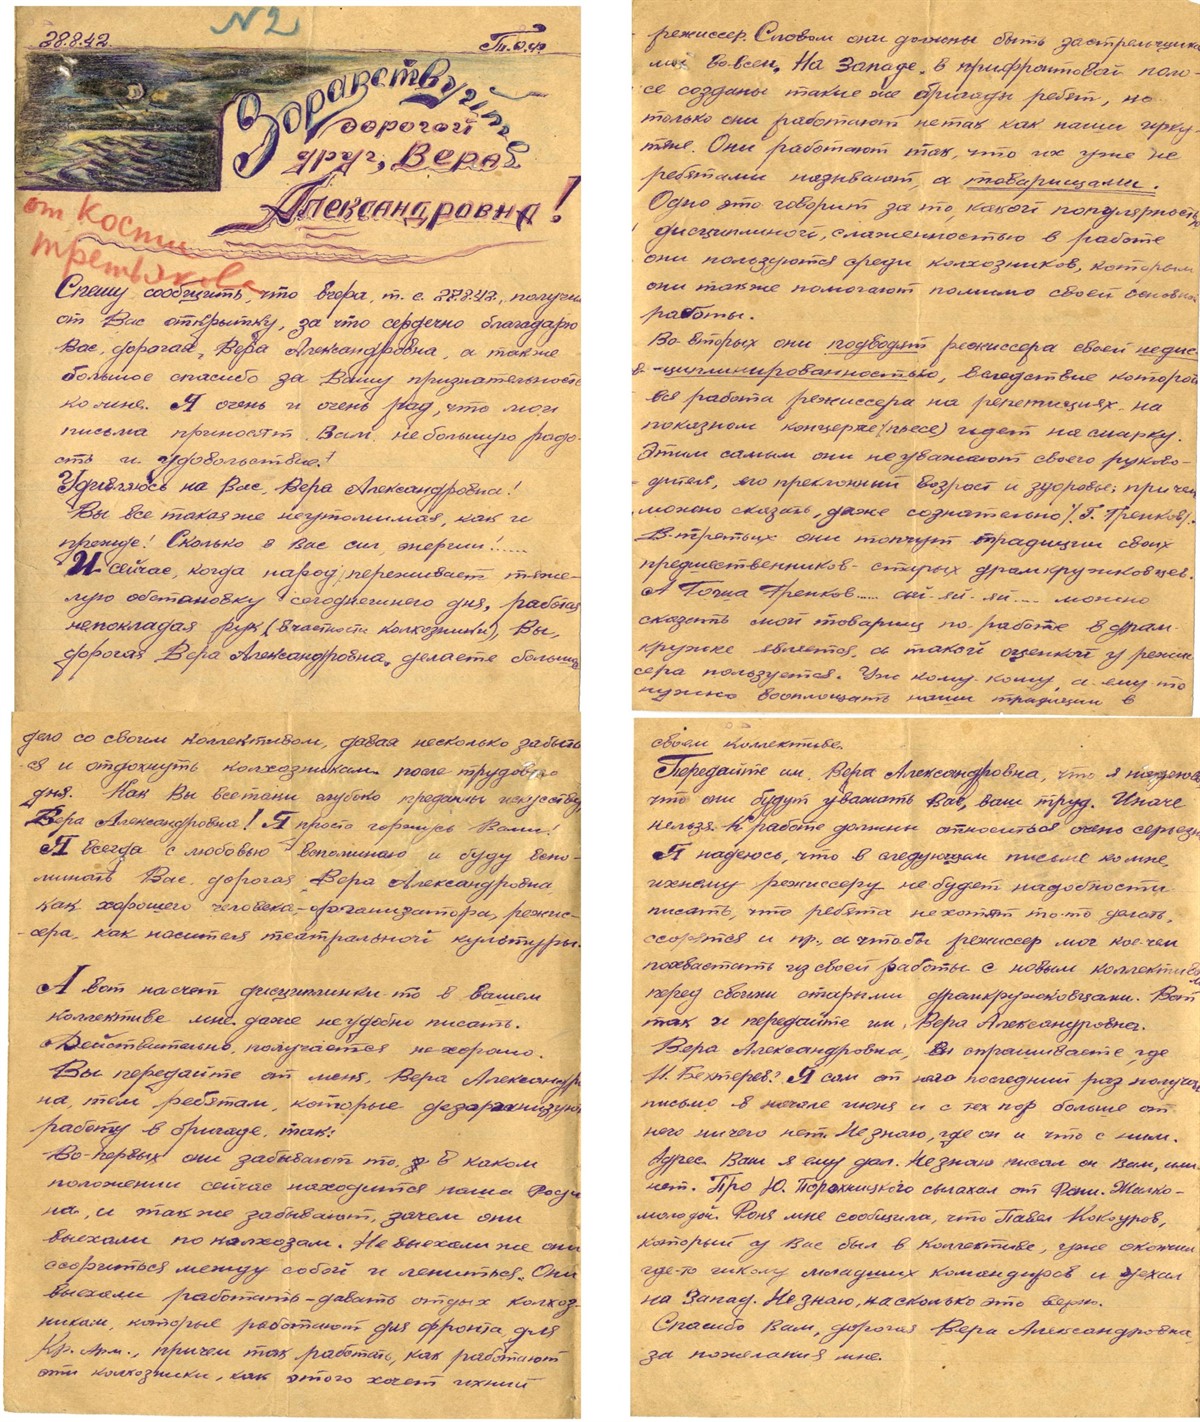 N2
28.8.42. Т.О.Ф.
Здравствуйте
дорогой
друг, Вера
Александровна!
от Кости
Третьякова
Спешу сообщить, что вчера, т.е. 27.8.42, получил
от Вас открытку, за что сердечно благодарю
Вас, дорогая, Вера Александровна, а также
большое спасибо за Вашу признательность
ко мне. Я очень и очень рад, что мои
письма приносят Вам, небольшую радо-
сть и удовольствие!
Удивляюсь на Вас, Вера Александровна!
Вы все такая же неутомимая, как и
прежде! Сколько в Вас сил, энергии!......
И сейчас, когда народ, переживает тяже-
лую обстановку сегоднешнего дня, работая
непокладая рук (в частности колхозники), Вы,
дорогая Вера Александровна, делаете большое
дело со своим коллективом, давая несколько забыть-
ся и отдохнуть колхозникам после трудового
дня. Как Вы всетаки глубоко преданны искусству,
Вера Александровна! Я просто горжусь Вами!
Я всегда с любовью вспоминаю и буду вспо-
минать Вас, дорогая, Вера Александровна
как хорошего человека,-организатора, режис-
сера, как носителя театральной культуры.
А вот насчет дисциплинки-то в вашем
коллективе мне даже неудобно писать.
Действительно, получается нехорошо.
Вы передайте от меня, Вера Александров-
на, тем ребятам, которые дезорганизуют
работу в бригаде, так:
Во-первых они забывают то, в каком
положении сейчас находится наша Роди-
на, и также забывают, зачем они
выехали по колхозам. Не выехали же они
ссориться между собой и лениться. Они
выехали работать-давать отдых колхоз-
никам, которые работают для фронта, для
Кр. Арм., причем так работать, как работают
эти колхозники, как этого хочет ихний
режиссер. Словом они должны быть застрельщика-
ми во всем. На Западе, в прифронтовой поло-
се созданы такие же бригады ребят, но
только они работают нетак как наши ирку
тяне. Они работают так, что их уже не
ребятами называют, а товарищами.
Одно это говорит за то, какой популярностью
дисциплиной, слаженностью в работе
они пользуются среди колхозников, которым
они также помогают помимо своей основной
работы.
Во-вторых они подводят режиссера своей недис-
-циплинированностью, вследствие которой
вся работа режиссера на репетициях на
показном концерте (пьесе) идет на смарку.
Этим самым они неуважают своего руково-
дителя, его преклонный возраст и здоровье; причем
можно сказать, даже сознательно /. Г. Пренков/.
В-третьих они топчут традиции своих
предшественников- старых драмкружковцев.
А Гоша Пренков..... ай-яй-яй.... можно
сказать мой товарищ по-работе в драм-
кружке является, а такой оценкой у режис
сера пользуется. Уж кому-кому, а ему-то
нужно воплощать наши традиции в
своем коллективе.
Передайте им, Вера Александровна, что я надеюсь,
что они будут уважать Вас, ваш труд. Иначе
нельзя. К работе должны относиться очень серьезно
Я надеюсь, что в следующем письме ко мне,
ихнему режиссеру не будет надобности
писать, что ребята нехотят то-то делать,
ссорятся и пр., а чтобы режиссер мог кое-чем
похвастать из своей работы с новым коллективом
перед своими старыми драмкружковцами. Вот
так и передайте им, Вера Александровна.
Вера Александровна, Вы спрашиваете, где
И. Бехтерев? Я сам от него последний раз получал
письмо в начале июня и с тех пор больше от
него ничего нет. Незнаю, где он и что с ним.
Адрес Ваш я ему дал. Незнаю писал он Вам, или
нет. Про Ю. Порохницкого слыхал от Фани. Жалко-
молодой. Фаня мне сообщила, что Павел Кокоуров,
который у Вас был в коллективе, уже окончил
где-то школу младших командиров и уехал
на Запад. Незнаю, насколько это верно.
Спасибо Вам, дорогая Вера Александровна,
за пожелания мне.